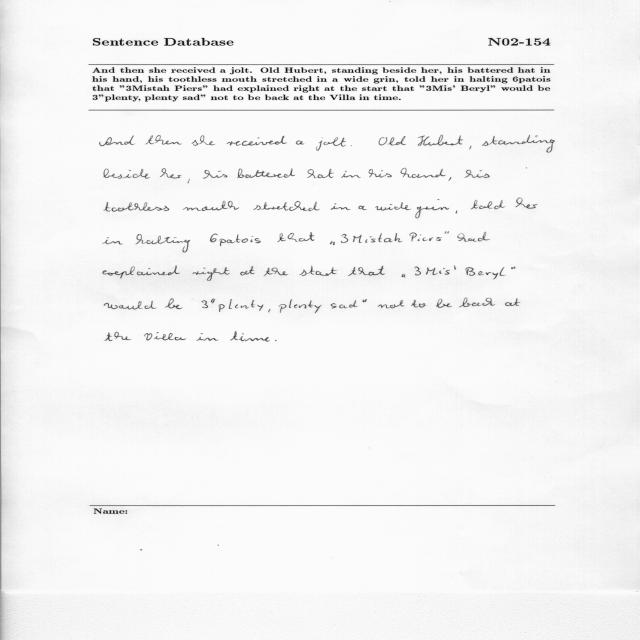 Sentence Database N02-154
And then she received a jolt. Old Hubert, standing beside her, his battered hat in
his hand, his toothless mouth stretched in a wide grin, told her in halting 6patois
that "3Mistah Piers" had explained right at the start that "3Mis' Beryl" would be
3"plenty, plenty sad" not to be back at the Villa in time.
And then she received a jolt. Old Hubert, standing
beside her, his battered hat in his hand, his
toothless mouth stretched in a wide grin, told her
in halting 6patois that „3Mistah Piers" had
explained right at the start that „3Mis' Beryl"
would be 3"plenty, plenty sad" not to be back at
the Villa in time.
Name: